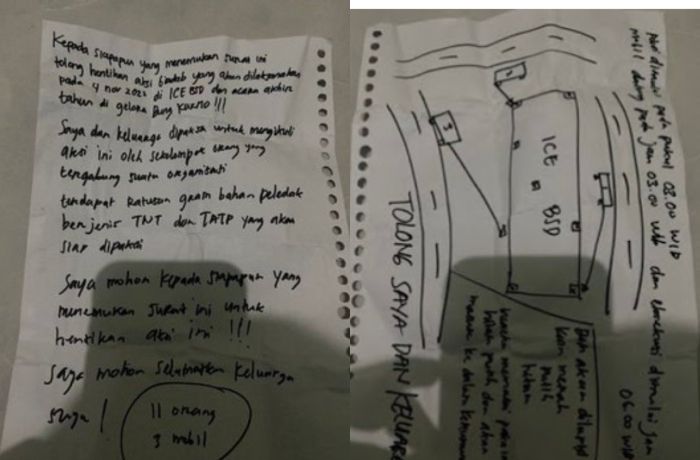 Kepada siapapun yang menemukan surat ini
tolong hentikan aksi bomb yang akan dilaksanakan
pada 4 nov 2022 di ICE BSD dan acara akhir
tahun di gelora Bung Karno !!!
Saya dan keluarga dipaksa untuk mengikuti
aksi ini oleh sekelompok orang yang
tergabung suatu organisasi
terdapat ratusan gram bahan peledak
berjenis TNT dan TATP yang akan
siap dipakai
Saya mohon kepada siapapun yang
menemukan surat ini untuk
hentikan aksi ini !!!
Saya mohon selamatkan keluarga
saya !
11 orang
3 mobil
dimulai pada pukul 03.00 WIB
mobil datang pada jam 03.00 WIB dan eksekusi dimulai jam
06.00 WIB
3
ICE
BSD
TOLONG SAYA DAN KELUARGA
akan
kain merah
putih
hitam
memakai
hitam putih dan akan
masuk ke dalam